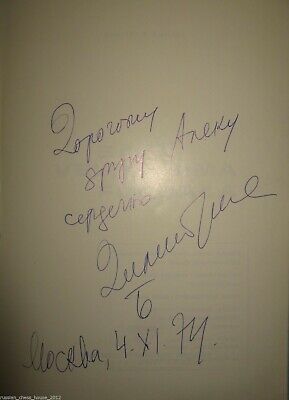 Дорогому
другу Алеку
сердечно
Москва, 4.XI.74.
russian_chess_house_2012